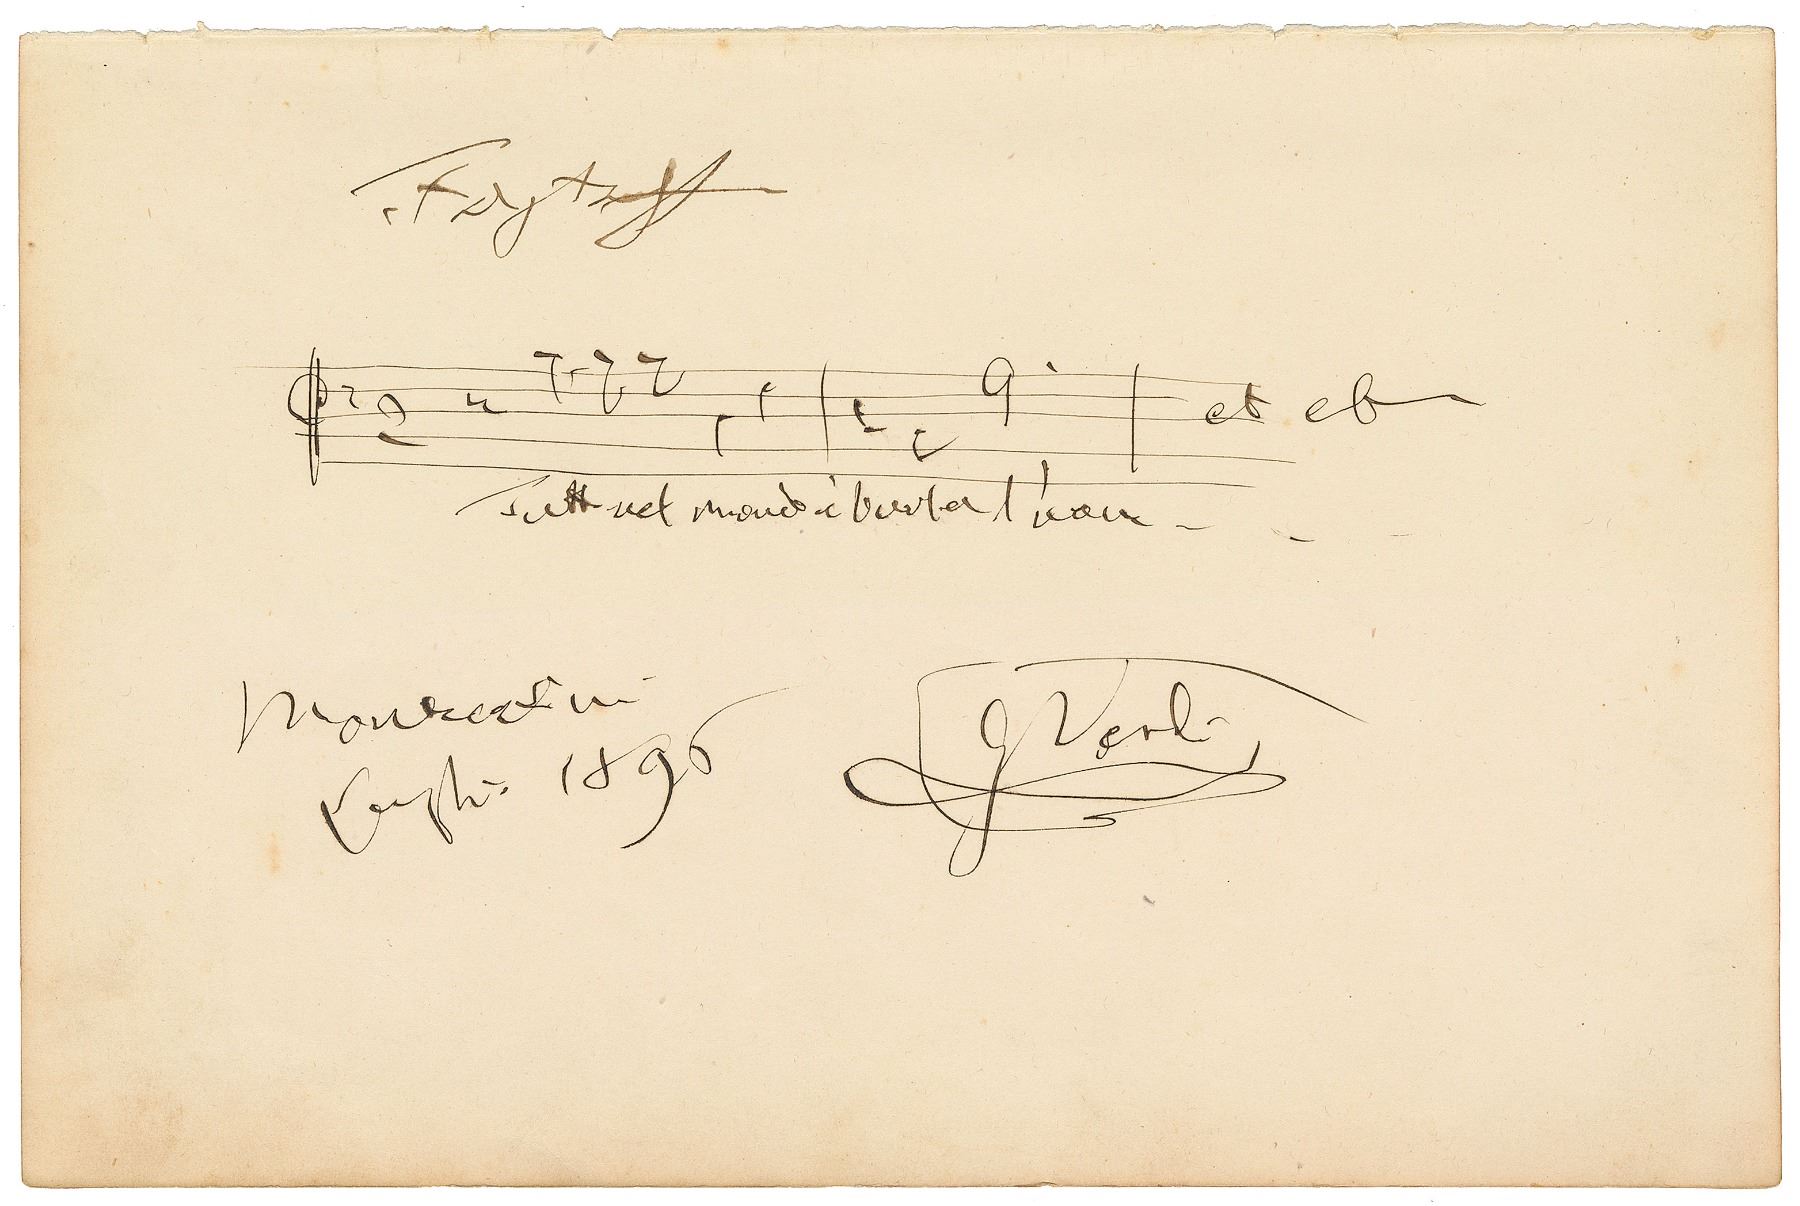 Falstaff
et eb
Tutt nel mondo è burla l'uom - - -
Montecatini
Luglio 1896
G Verdi